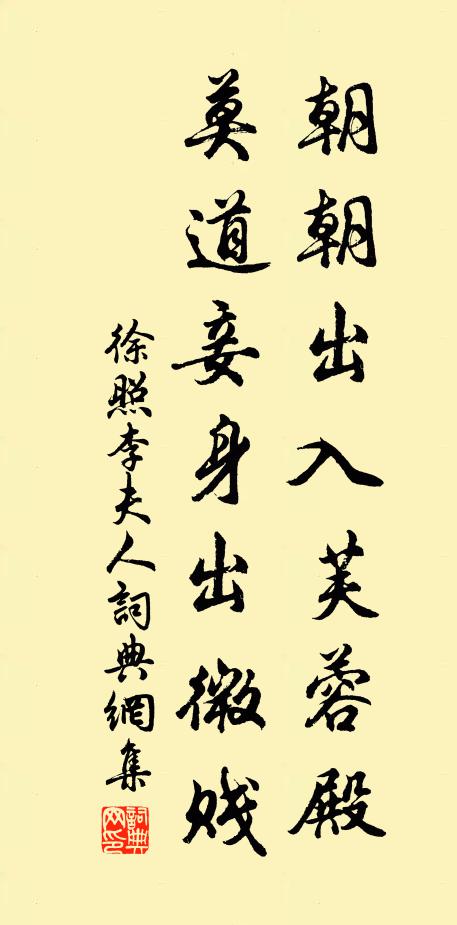 朝朝出入芙蓉殿
莫道妾身出微賤
徐照李夫人詞典網集
詞典网印